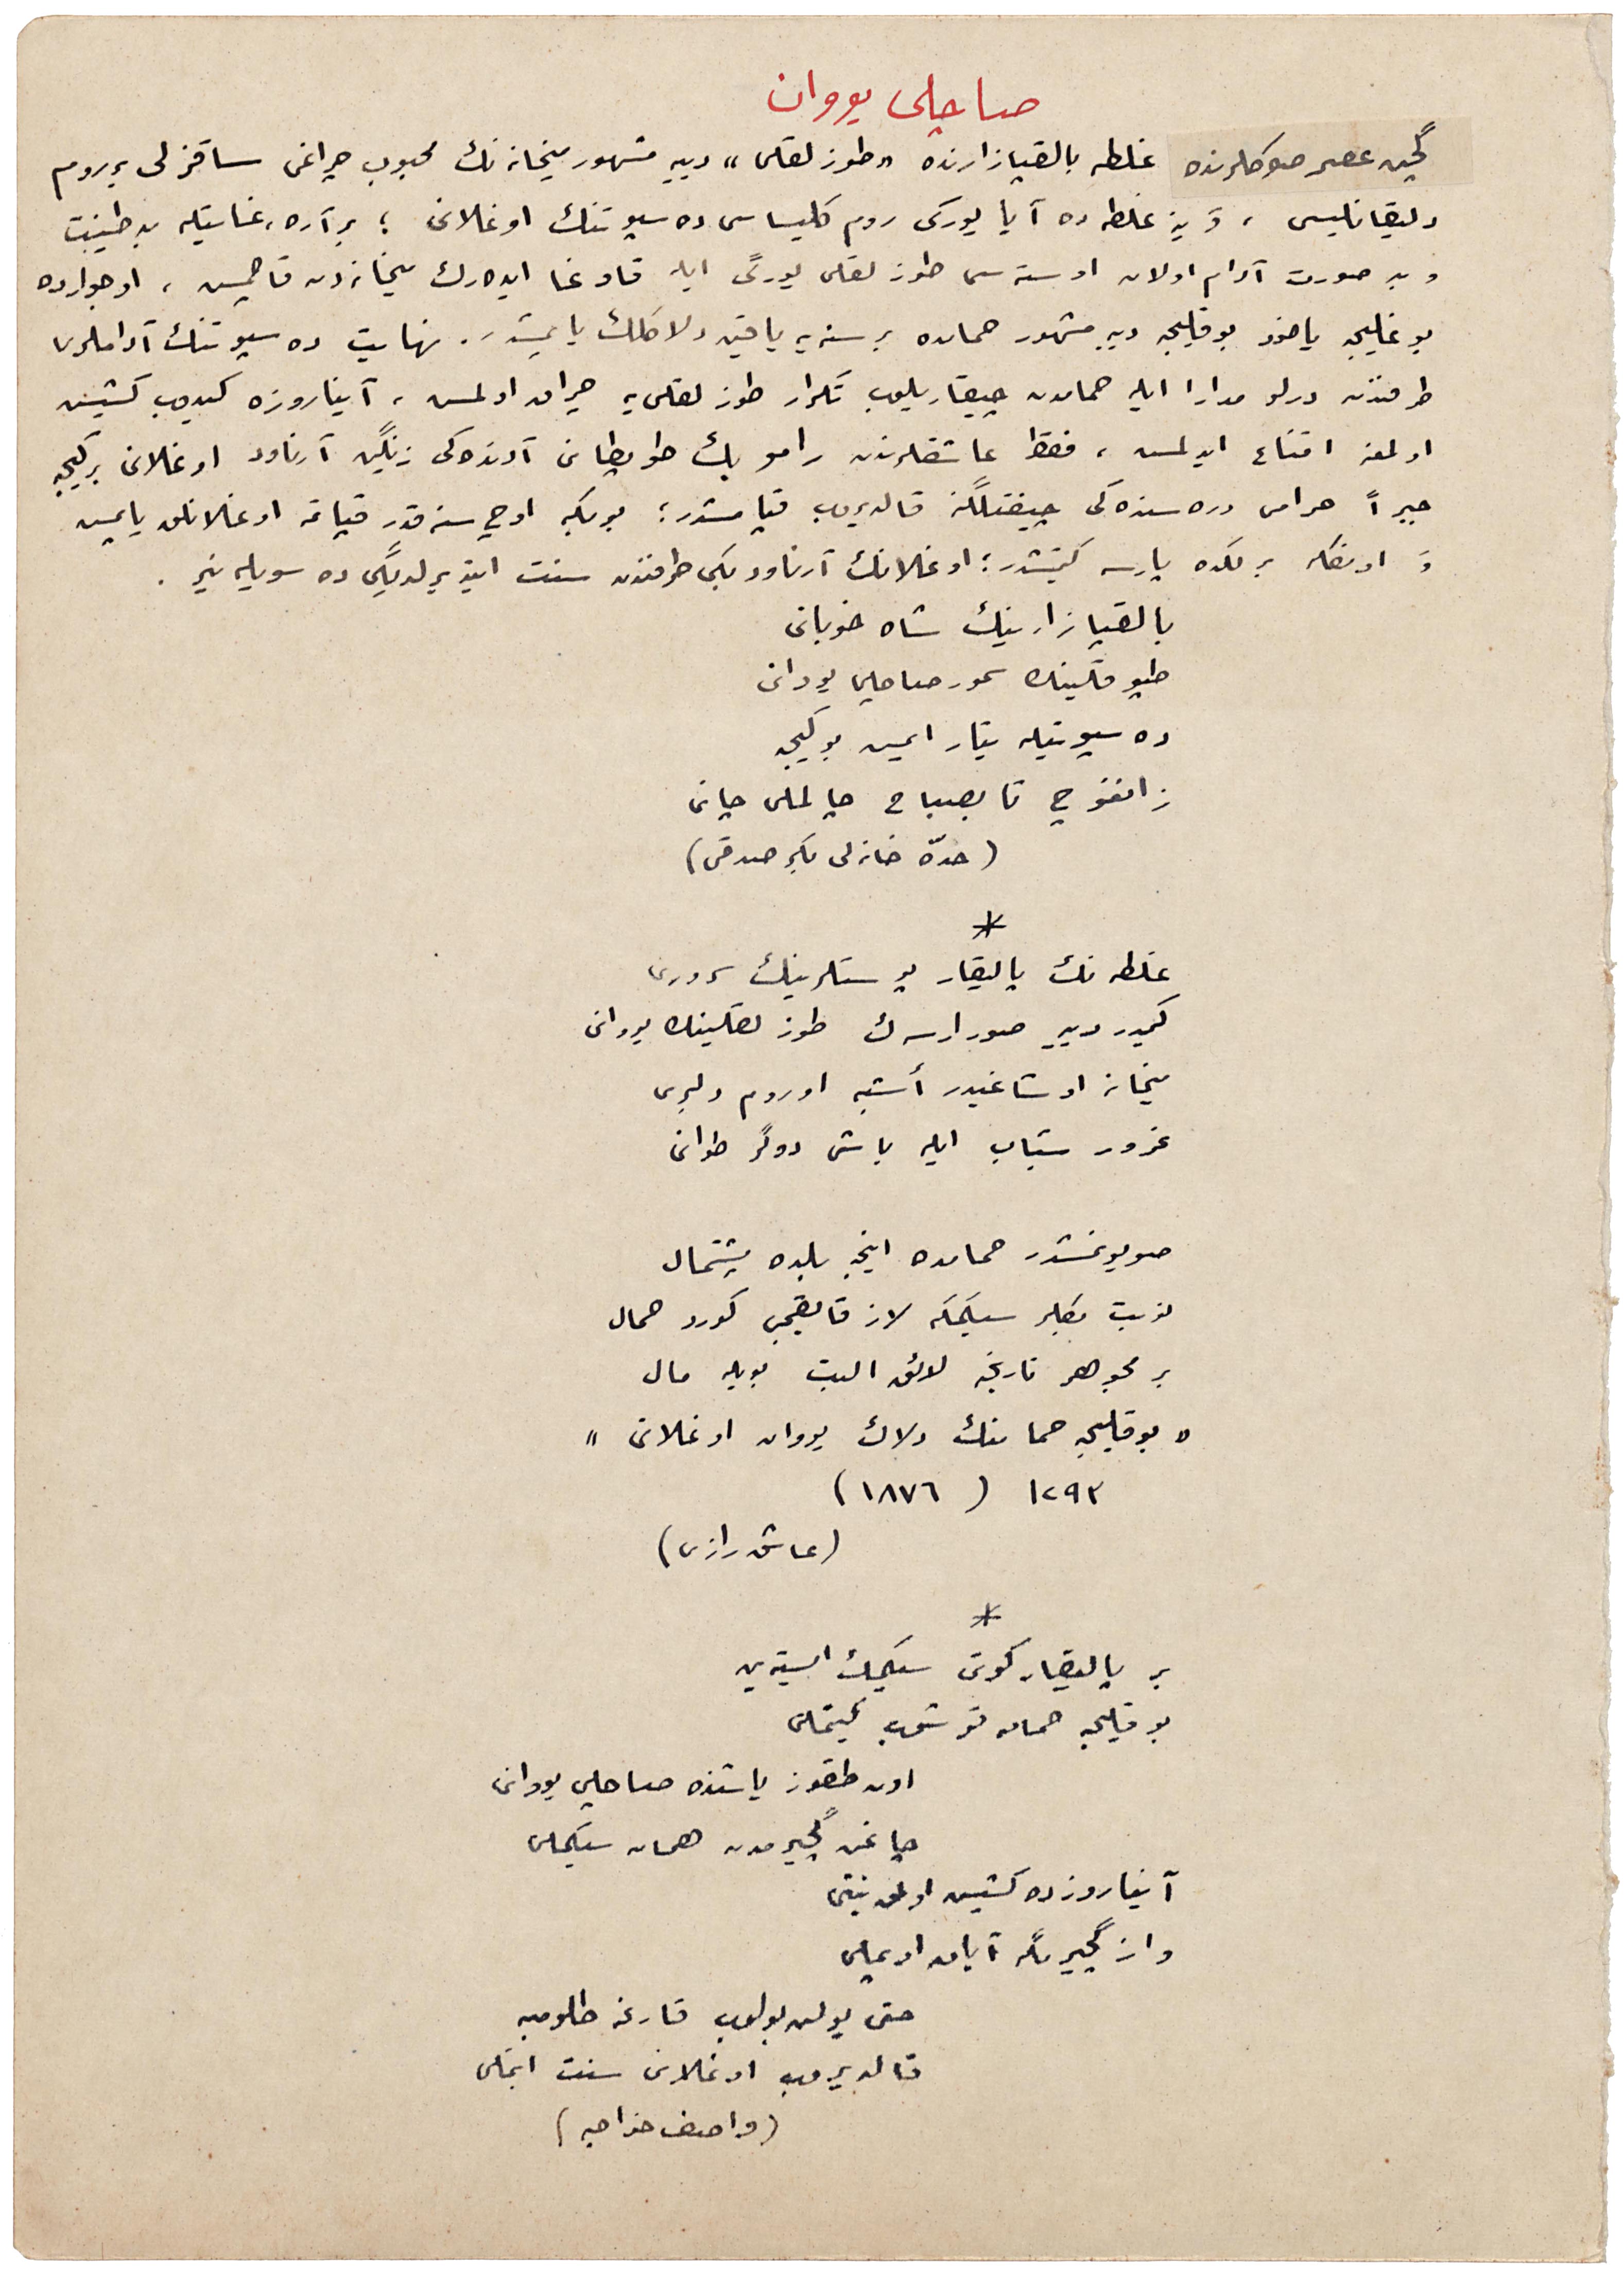 صاچلی یووان
گچن عصر صوڭلرنده غلطه بالقپازارنده «طوزلقلی» دییه مشهور میخانه نك محبوب چراغی ساقزلی بر روم
دلیقانلیسی ، و ینه غلطه ده آیا یورکی روم کلیساسی ده سپوتنك اوغلانی ؛ بر آره، غایتله بد طینت
و بد صورت آدم اولان اوسته سی طوزلقلی یورگی ایله قاوغا ایده رك میخانه دن قاچمش ، او جوارده
بوغلیجه یاخود بوقلیجه دییه مشهور حمامده بر سنه یه یاقین دلاكلك یاپمشدر. نهایت ده سپوتنك آداملری
طرفندن درلو مدارا ایله حمامدن چیقاریلوب تكرار طوزلقلی یه چراق اولمش ، آیناروزه کیدوب کشیش
اولمغه اقناع ایدلمش ، فقط عاشقلرندن رامو بك طوپطانی آدنده کی زنگین آرناود اوغلانی بر گیجه
جبراً حرامی دره سنده کی چیفتلگنه قالدیروب قپامشدر؛ بو بكه اوچ سنه قدر قپاتمه اوغلانلق یاپمش
و اونكله برلكده پارسه گیتمشدر؛ اوغلانك آرناود بكی طرفندن سنت ایتدیرلدیگی ده سویله نیر .
بالقپازارینك شاه خوبانی
طپو قلینك سمور صاچلی یووانی
ده سپوتیله یتار ایمش بو گیجه
زانغوچ تا بصباح چالملی چانی
(حدّه خانه لی بكر صدقی)
*
غلطه نك پالیقار پوستلرینك سروری
كیمدر دییه صورارسه ك طوزلقلینك یووانی
میخانه اوشاغیدر أشبه اوروم دلبری
غرور شباب ایله باشی دوگر طوانی
صویونمشدر حمامده اینجه بلده پشتمال
نوبت بكلر سیكمكه لاز قایقجی كورد حمال
بر مجوهر تاریخه لائق البت بویله مال
« بوقلیجه حمامنك دلاك یووان اوغلانی »
١٢٩٣ (١٨٧٦)
(عاشق رازی)
*
بر پالیقار گوتی سیكمك ایسته ین
بوقلیجه حمامه قوشوب گیتملی
اون طقوز یاشنده صاچلی یووانی
چاغی گچیرمدن همان سیكملی
آیناروزده كشیش اولمق نیتی
وازگچیرمگه آیاق اویملی
حتی یولن بولوب قارغه طلومبه
قالدیروب اوغلانی سنت ایتملی
(واصف خواجه)